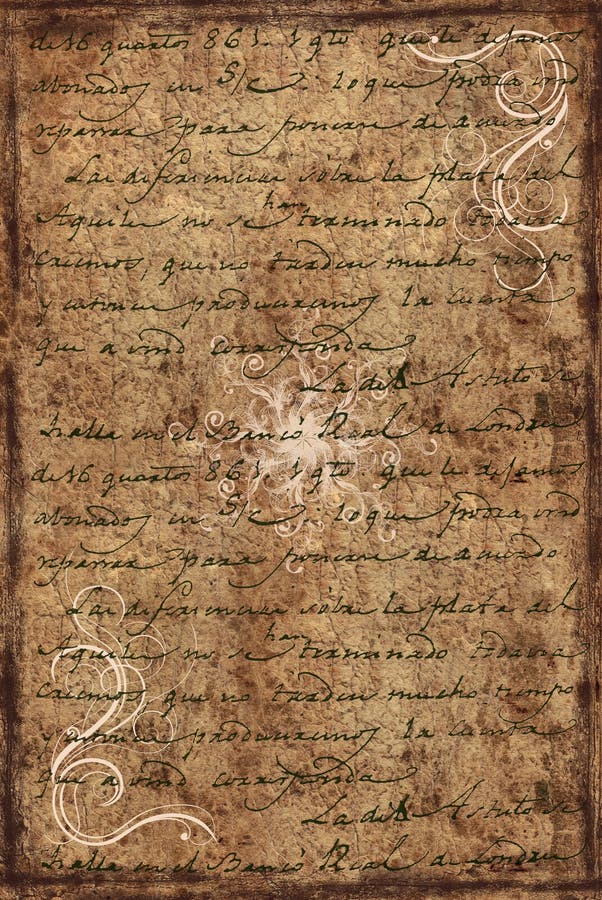 de 16 quartos 861. 1 qto que le dejamos
abonados en S/C. lo que podra vmd
reparrar para ponerse de acuerdo.
Las diferencias sobre la plata del
Aquiles no se han terminado todavia
creemos, que no tarden mucho tiempo
y entonces produciremos la cuenta
que a vmd corresponda
La del Astuto se
halla en el Banco Real de Londres
de 16 quartos 861. 1 qto que le dejamos
abonados en S/C. lo que podra vmd
reparrar para ponerse de acuerdo.
Las diferencias sobre la plata del
Aquiles no se han terminado todavia
creemos, que no tarden mucho tiempo
y entonces produciremos la cuenta
que a vmd corresponda
La del Astuto se
halla en el Banco Real de Londres